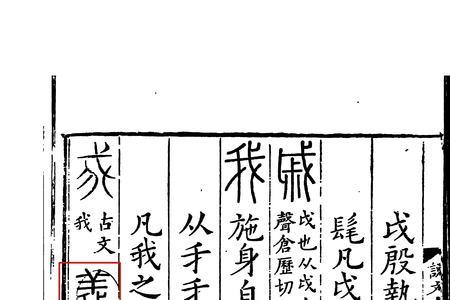 說文
戉殷執
髦凡戉
戚
戉也从戉
聲倉歷切
我施身自
从手手
凡我之
我
古文
我
義